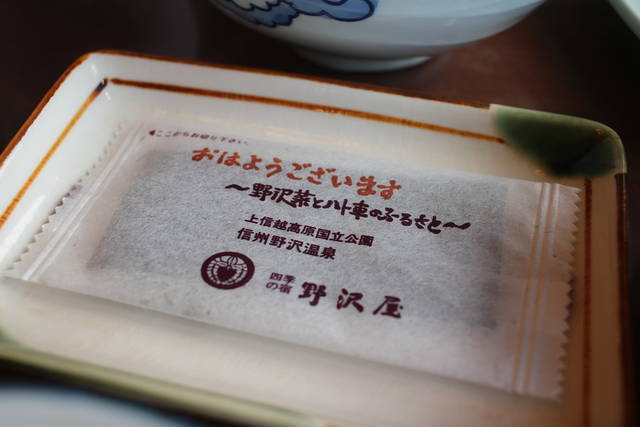 ◀ここからお切り下さい。
おはようございます
〜野沢菜とハト車のふるさと〜
上信越高原国立公園
信州野沢温泉
四季の宿 野沢屋